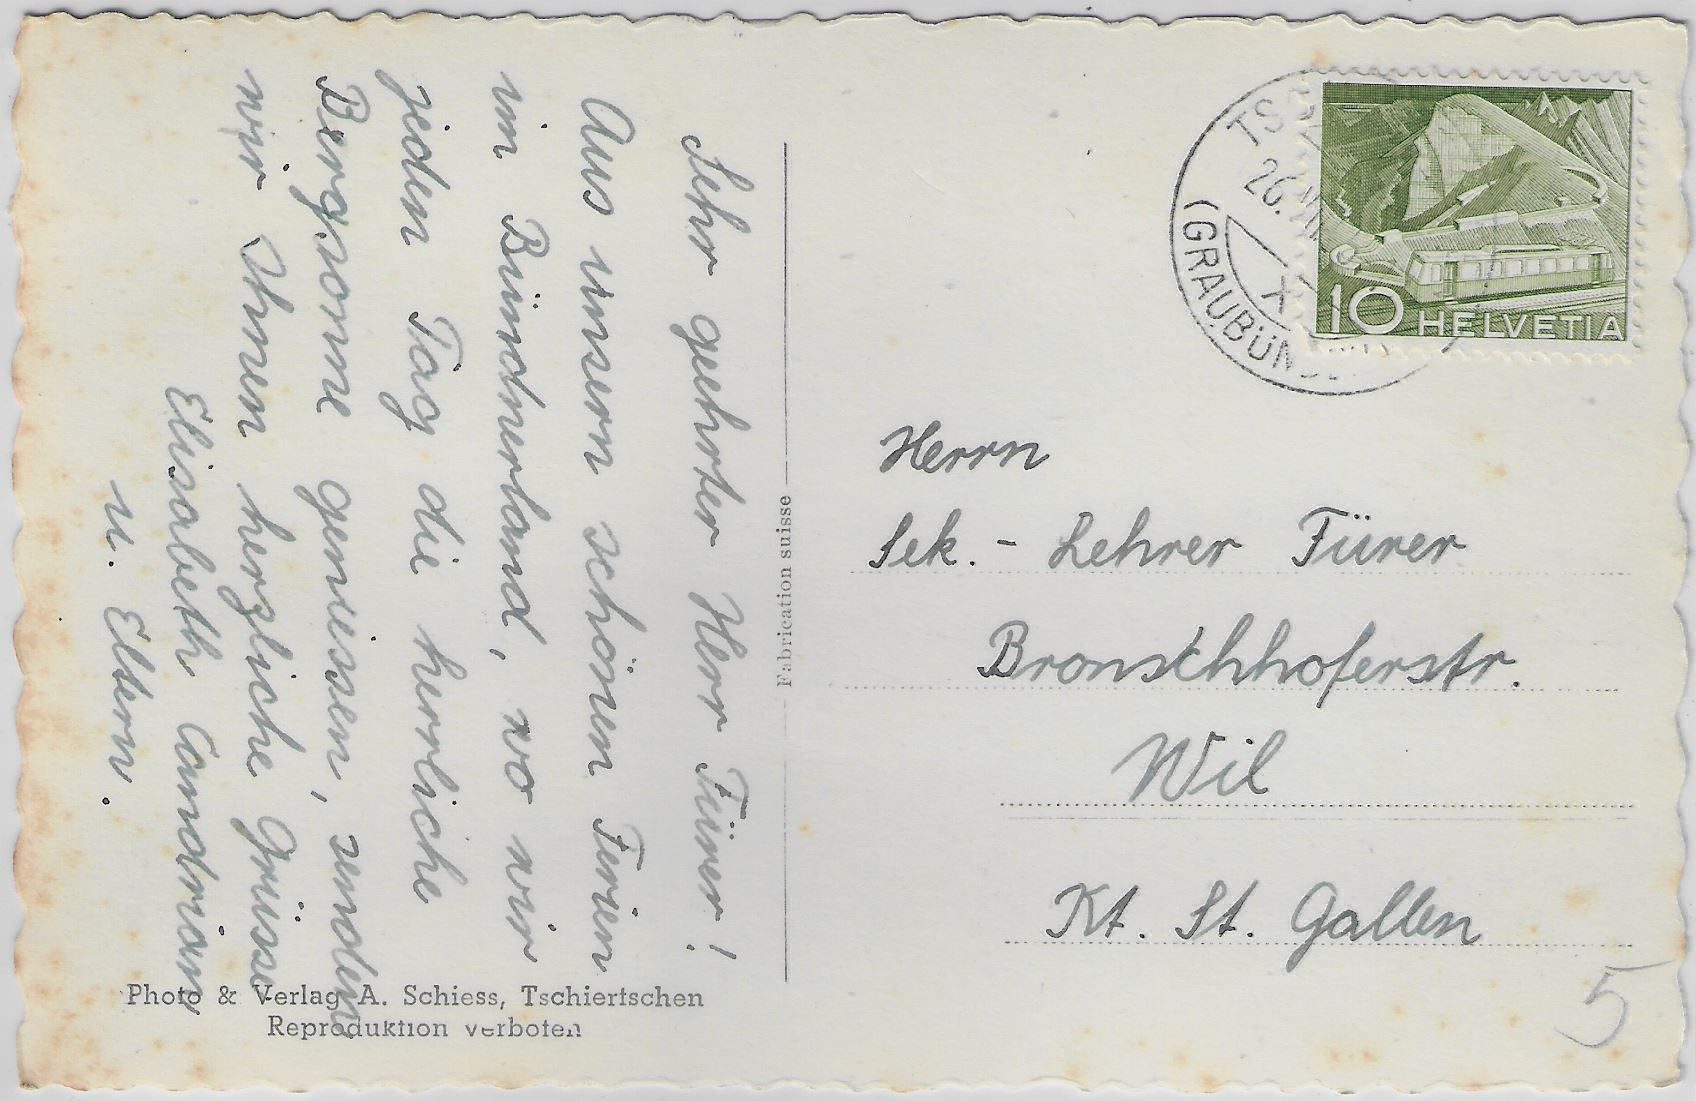 Sehr geehrter Herr Fürer!
Aus unsern schönen Ferien
im Bündnerland, wo wir
jeden Tag die herrliche
Bergsonne geniessen, senden
wir Ihnen herzliche Grüsse
Elisabeth Candrian
u. Eltern.
Photo & Verlag A. Schiess, Tschiertschen
Reproduktion verboten
Fabrication suisse
TS
26.
(GRAUBÜN
10 HELVETIA
Herrn
Sek.- Lehrer Fürer
Bronschhoferstr.
Wil
Kt. St. Gallen
5